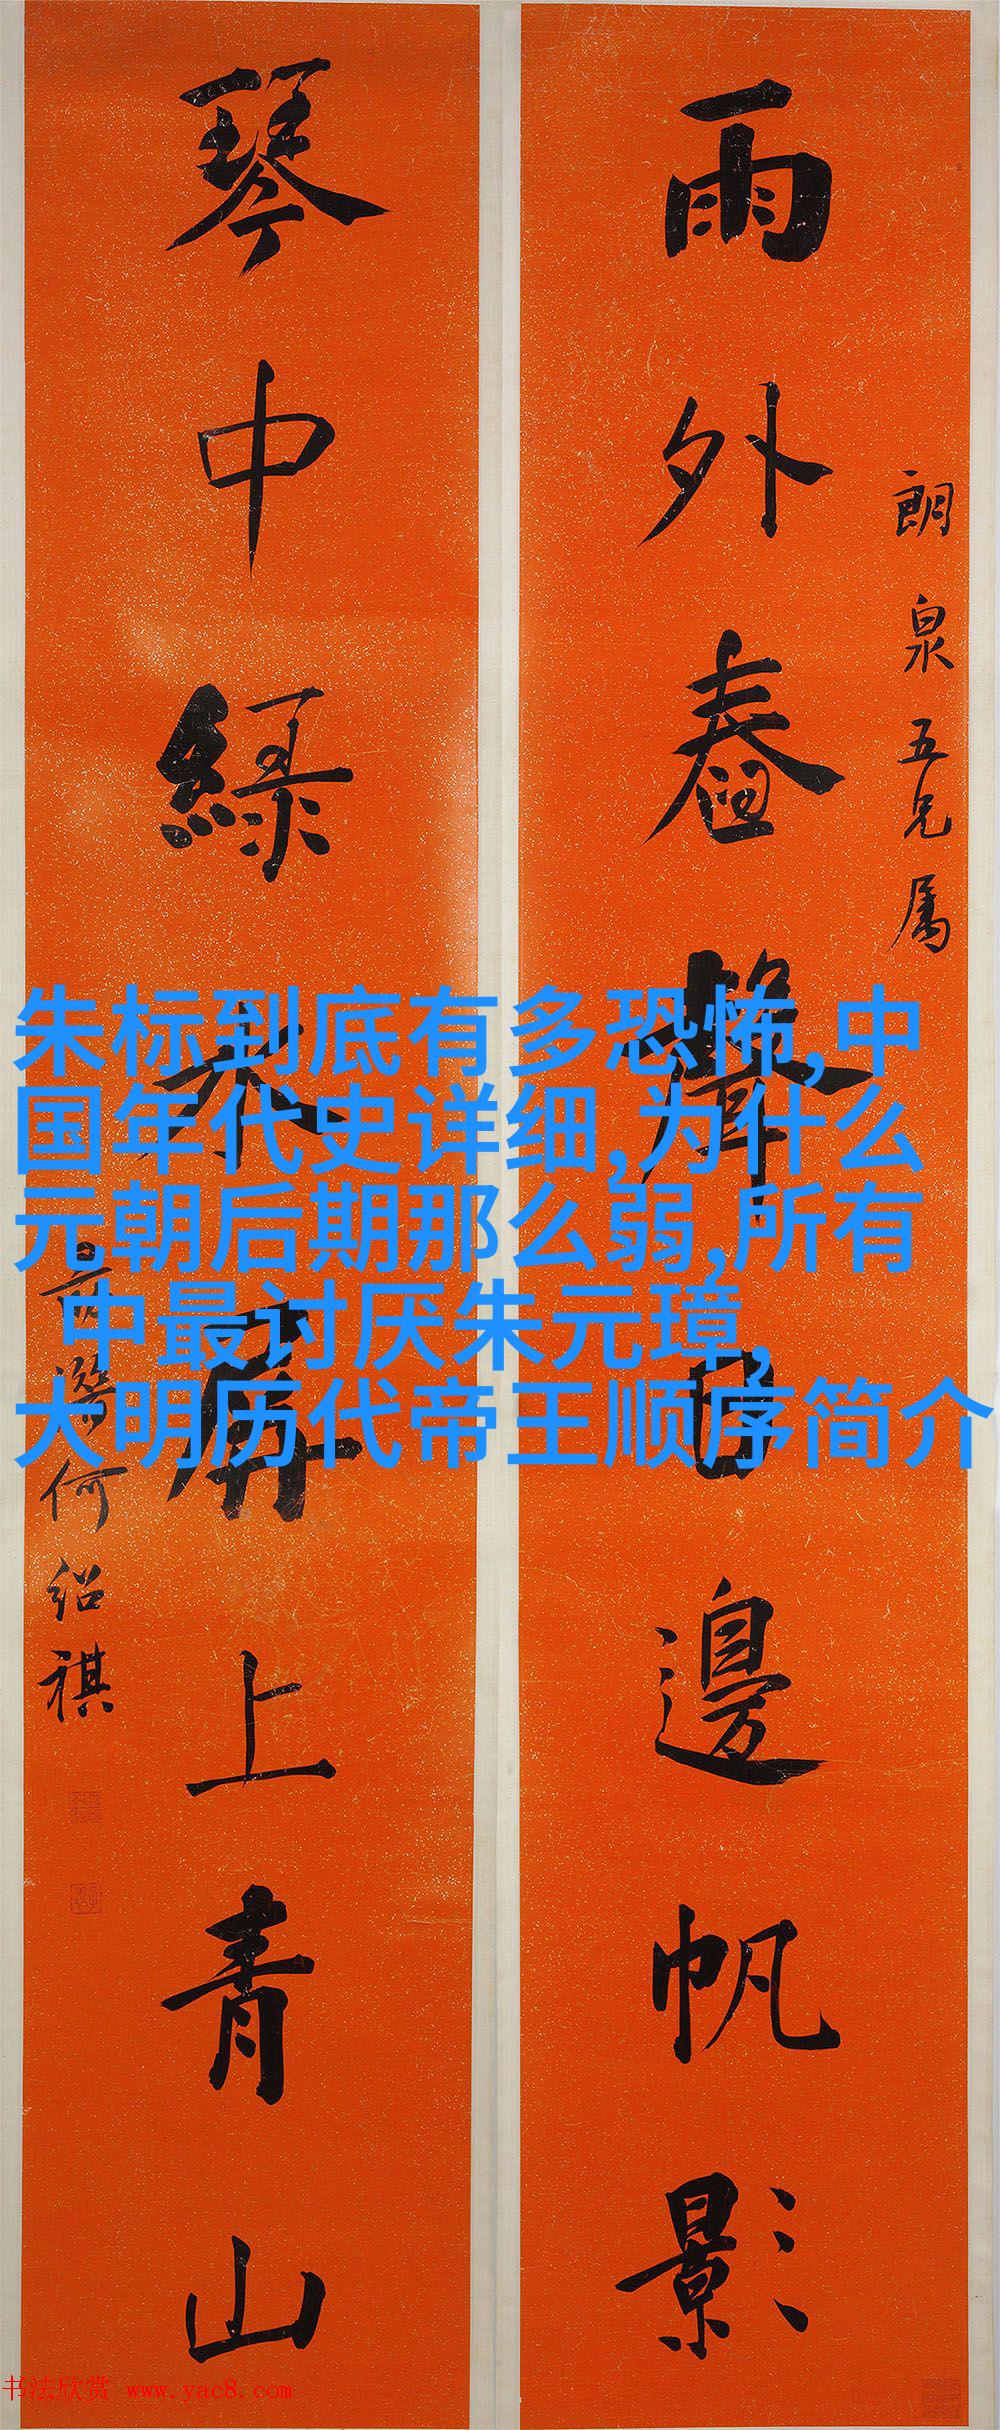 朗泉五兄属
雨外舂聲日邊帆影
琴中綠水屏上青山
何紹祺
朱标到底有多恐怖,中
国年代史详细,为什么
元朝后期那么弱,所有
中最讨厌朱元璋,
大明历代帝王顺序简介
书法欣赏 www.yac8.com